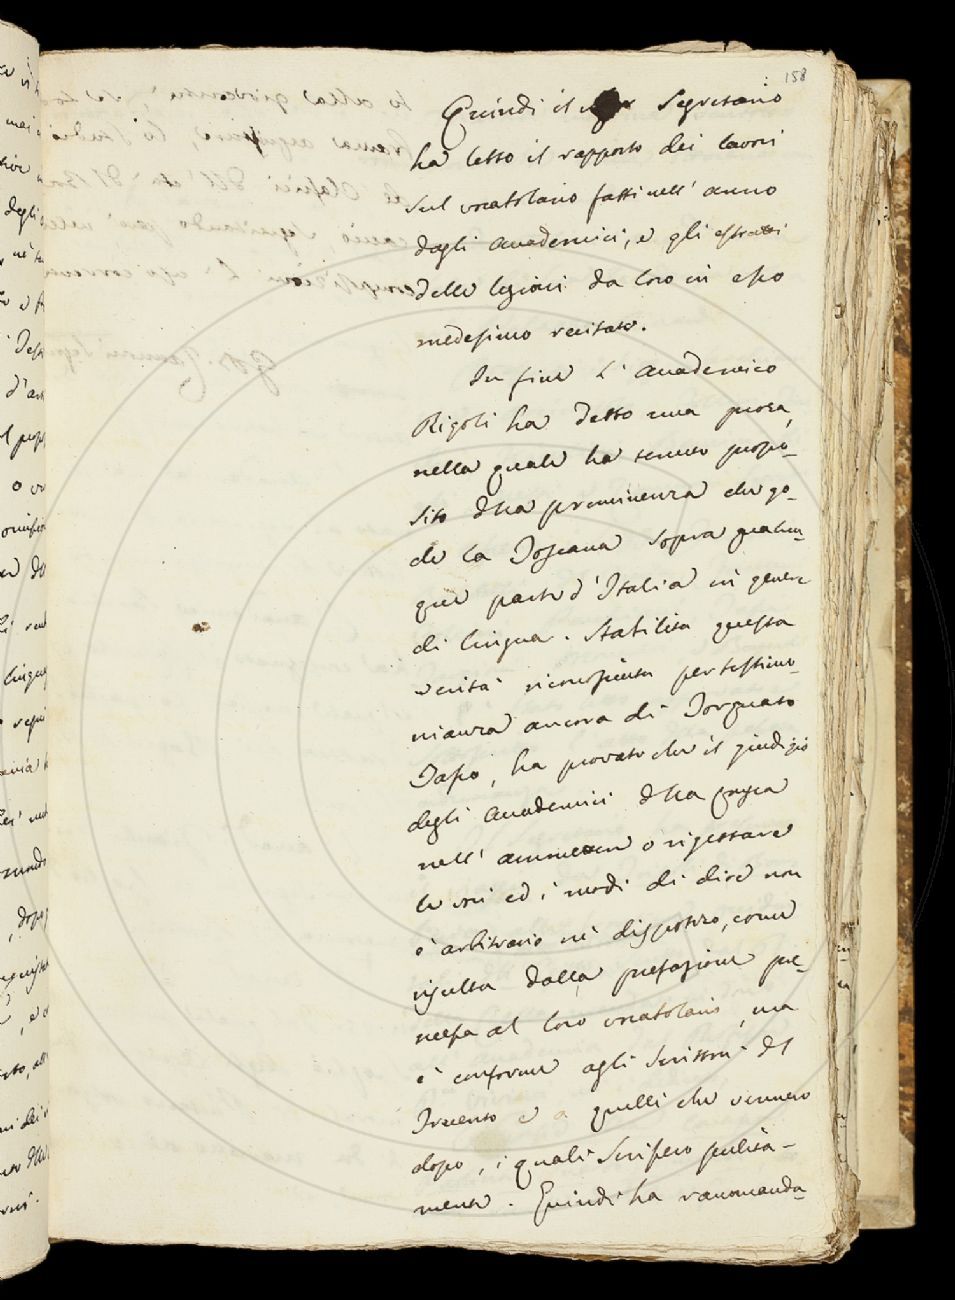 158
Quindi il Segretario
ha letto il rapporto dei lavori
sul vocabolario fatti nell' anno
dagli accademici, e gli estratti
delle lezioni da loro in esso
medesimo recitate.
In fine l' accademico
Rigoli ha detto una prosa,
nella quale ha tenuto propo-
sito della preminenza che go-
de la Toscana sopra qualun-
que parte d' Italia in genere
di lingua. Stabilita questa
verità riconosciuta per testimo-
nianza ancora di Torquato
Tasso, ha provato che il giudizio
degli Accademici della Crusca
nell' ammettere o rigettare
le voci ed i modi di dire non
è arbitrario nè dispotico, come
risulta dalla prefazione pre-
messa al loro vocabolario, ma
è conforme agli Scrittori del
Trecento e a quelli che vennero
dopo, i quali scrissero pulita-
mente. Quindi ha raccomanda-